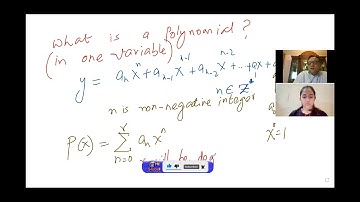 What is a polynomial?
(in one variable)
y = aₙxⁿ + aₙ₋₁xⁿ⁻¹ + aₙ₋₂xⁿ⁻² + ... + a₁x +
n ∈ Z
n is non-negative integer
P(x) = Σ aₙxⁿ
n=0
x⁰=1